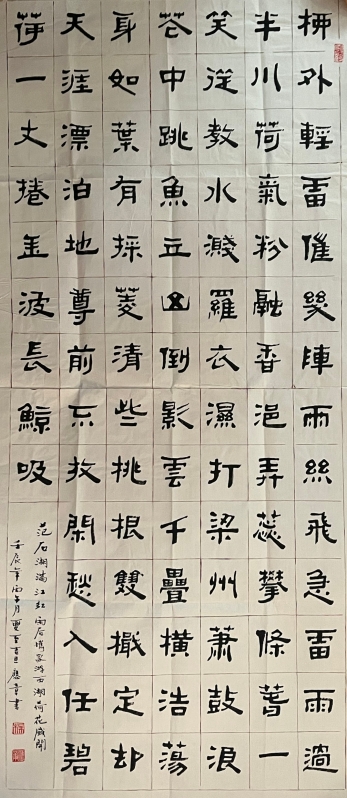 柳外輕雷催幾陣雨絲飛急雷雨過
半川荷氣粉融香浥弄蕊攀條萅一
笑從教水濺羅衣濕打梁州蕭鼓浪
花中跳魚立山倒影雲千疊橫浩蕩
身如葉有採菱清些桃根雙檝定却
天涯漂泊地尊前不放閑愁入任碧
荷一丈捲金波長鯨吸
范石湖滿江紅雨后携家游西湖荷花盛開
壬辰年丙午月夏至吉日書